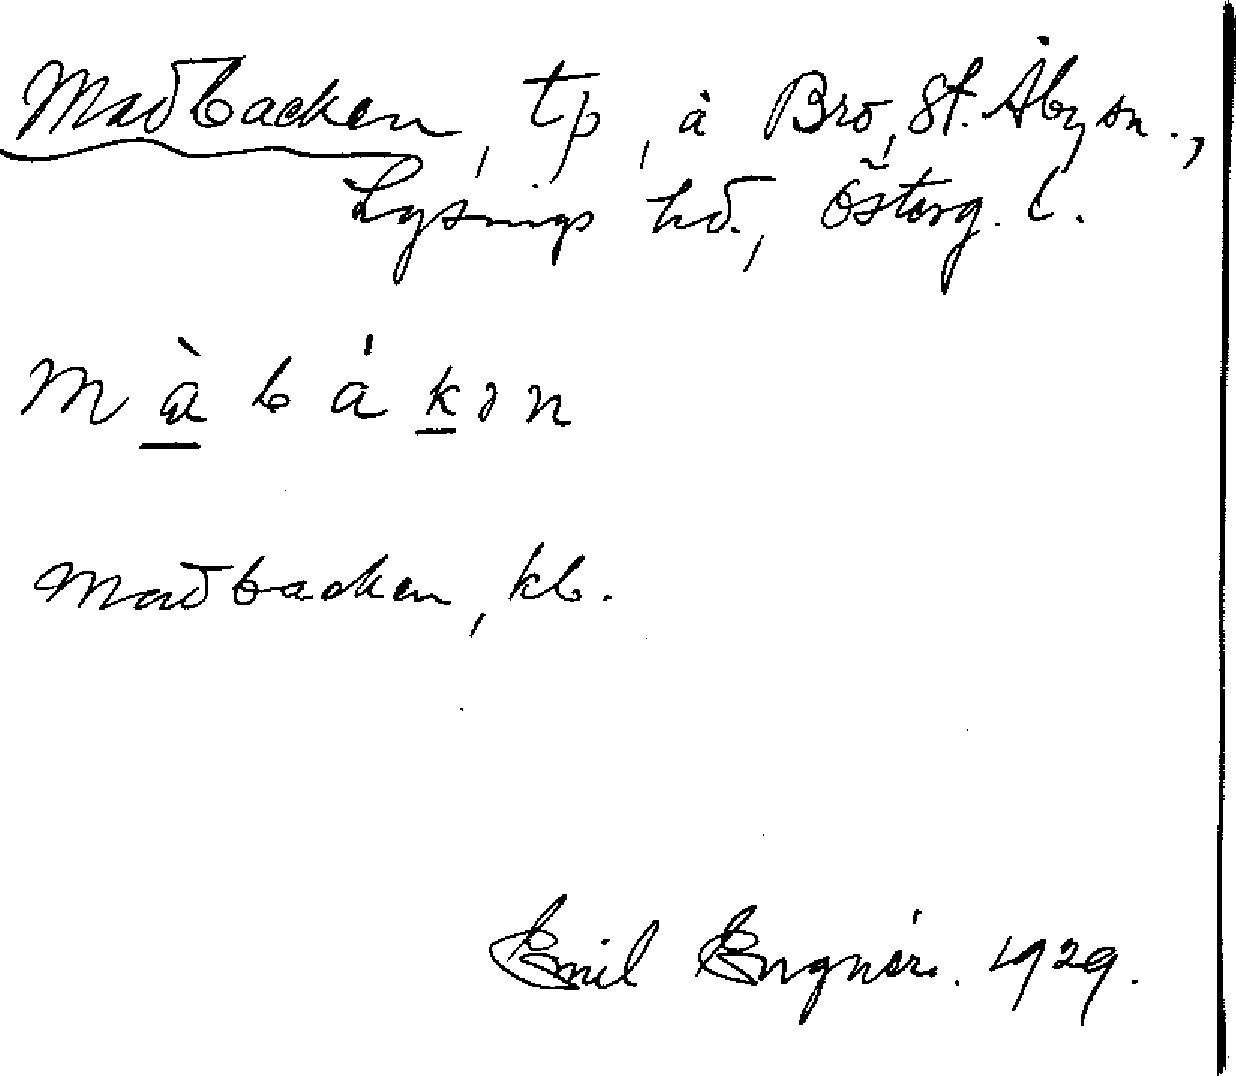 Madbacken, tp, å Bro, St. Åby sn.,
Lysings hd., Österg. l.
m à b á k ə n
Madbacken, kb.
Emil Engnér. 1929.